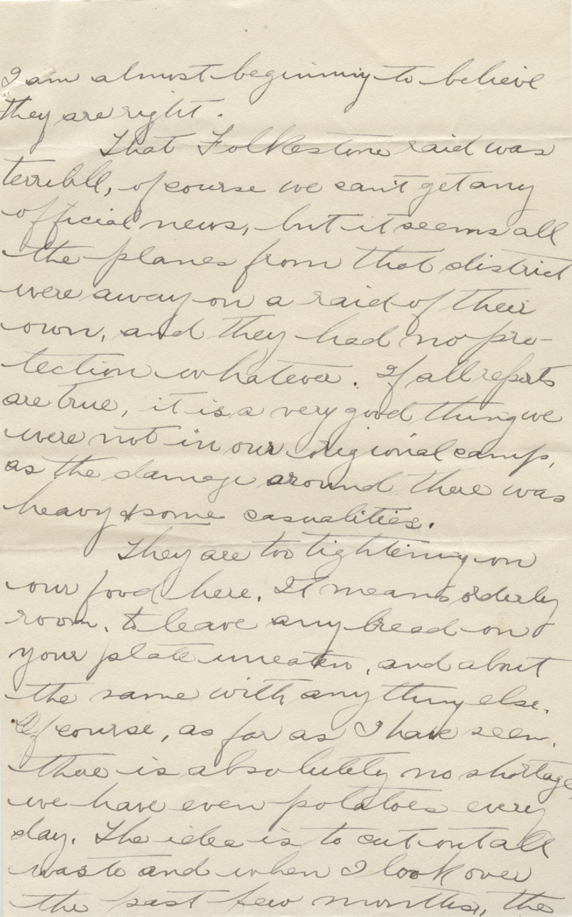 I am almost beginning to believe
they are right.
That Folkestone raid was
terrible, of course we can't get any
official news, but it seems all
the planes from that district
were away on a raid of their
own, and they had no pro-
tection whatever. If all reports
are true, it is a very good thing we
were not in our original camp,
as the damage around there was
heavy & some casualities.
They are too tightening on
our food here. It means orderly
room, to leave any bread on
your plate uneaten, and about
the same with any thing else.
Of course, as far as I have seen,
there is absolutely no shortage,
we have even potatoes every
day. The idea is to cut out all
waste and when I look over
the past few months, the